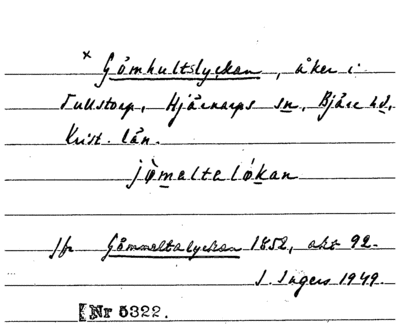 × Gömhultslyckan, åker i
Tullstorp, Hjärnarps sn, Bjäre hd,
Krist. län.
jòmalteló́kan
Jfr Gömmaltalyckan 1852, akt 92.
I. Ingers 1949.
Nr 5322.